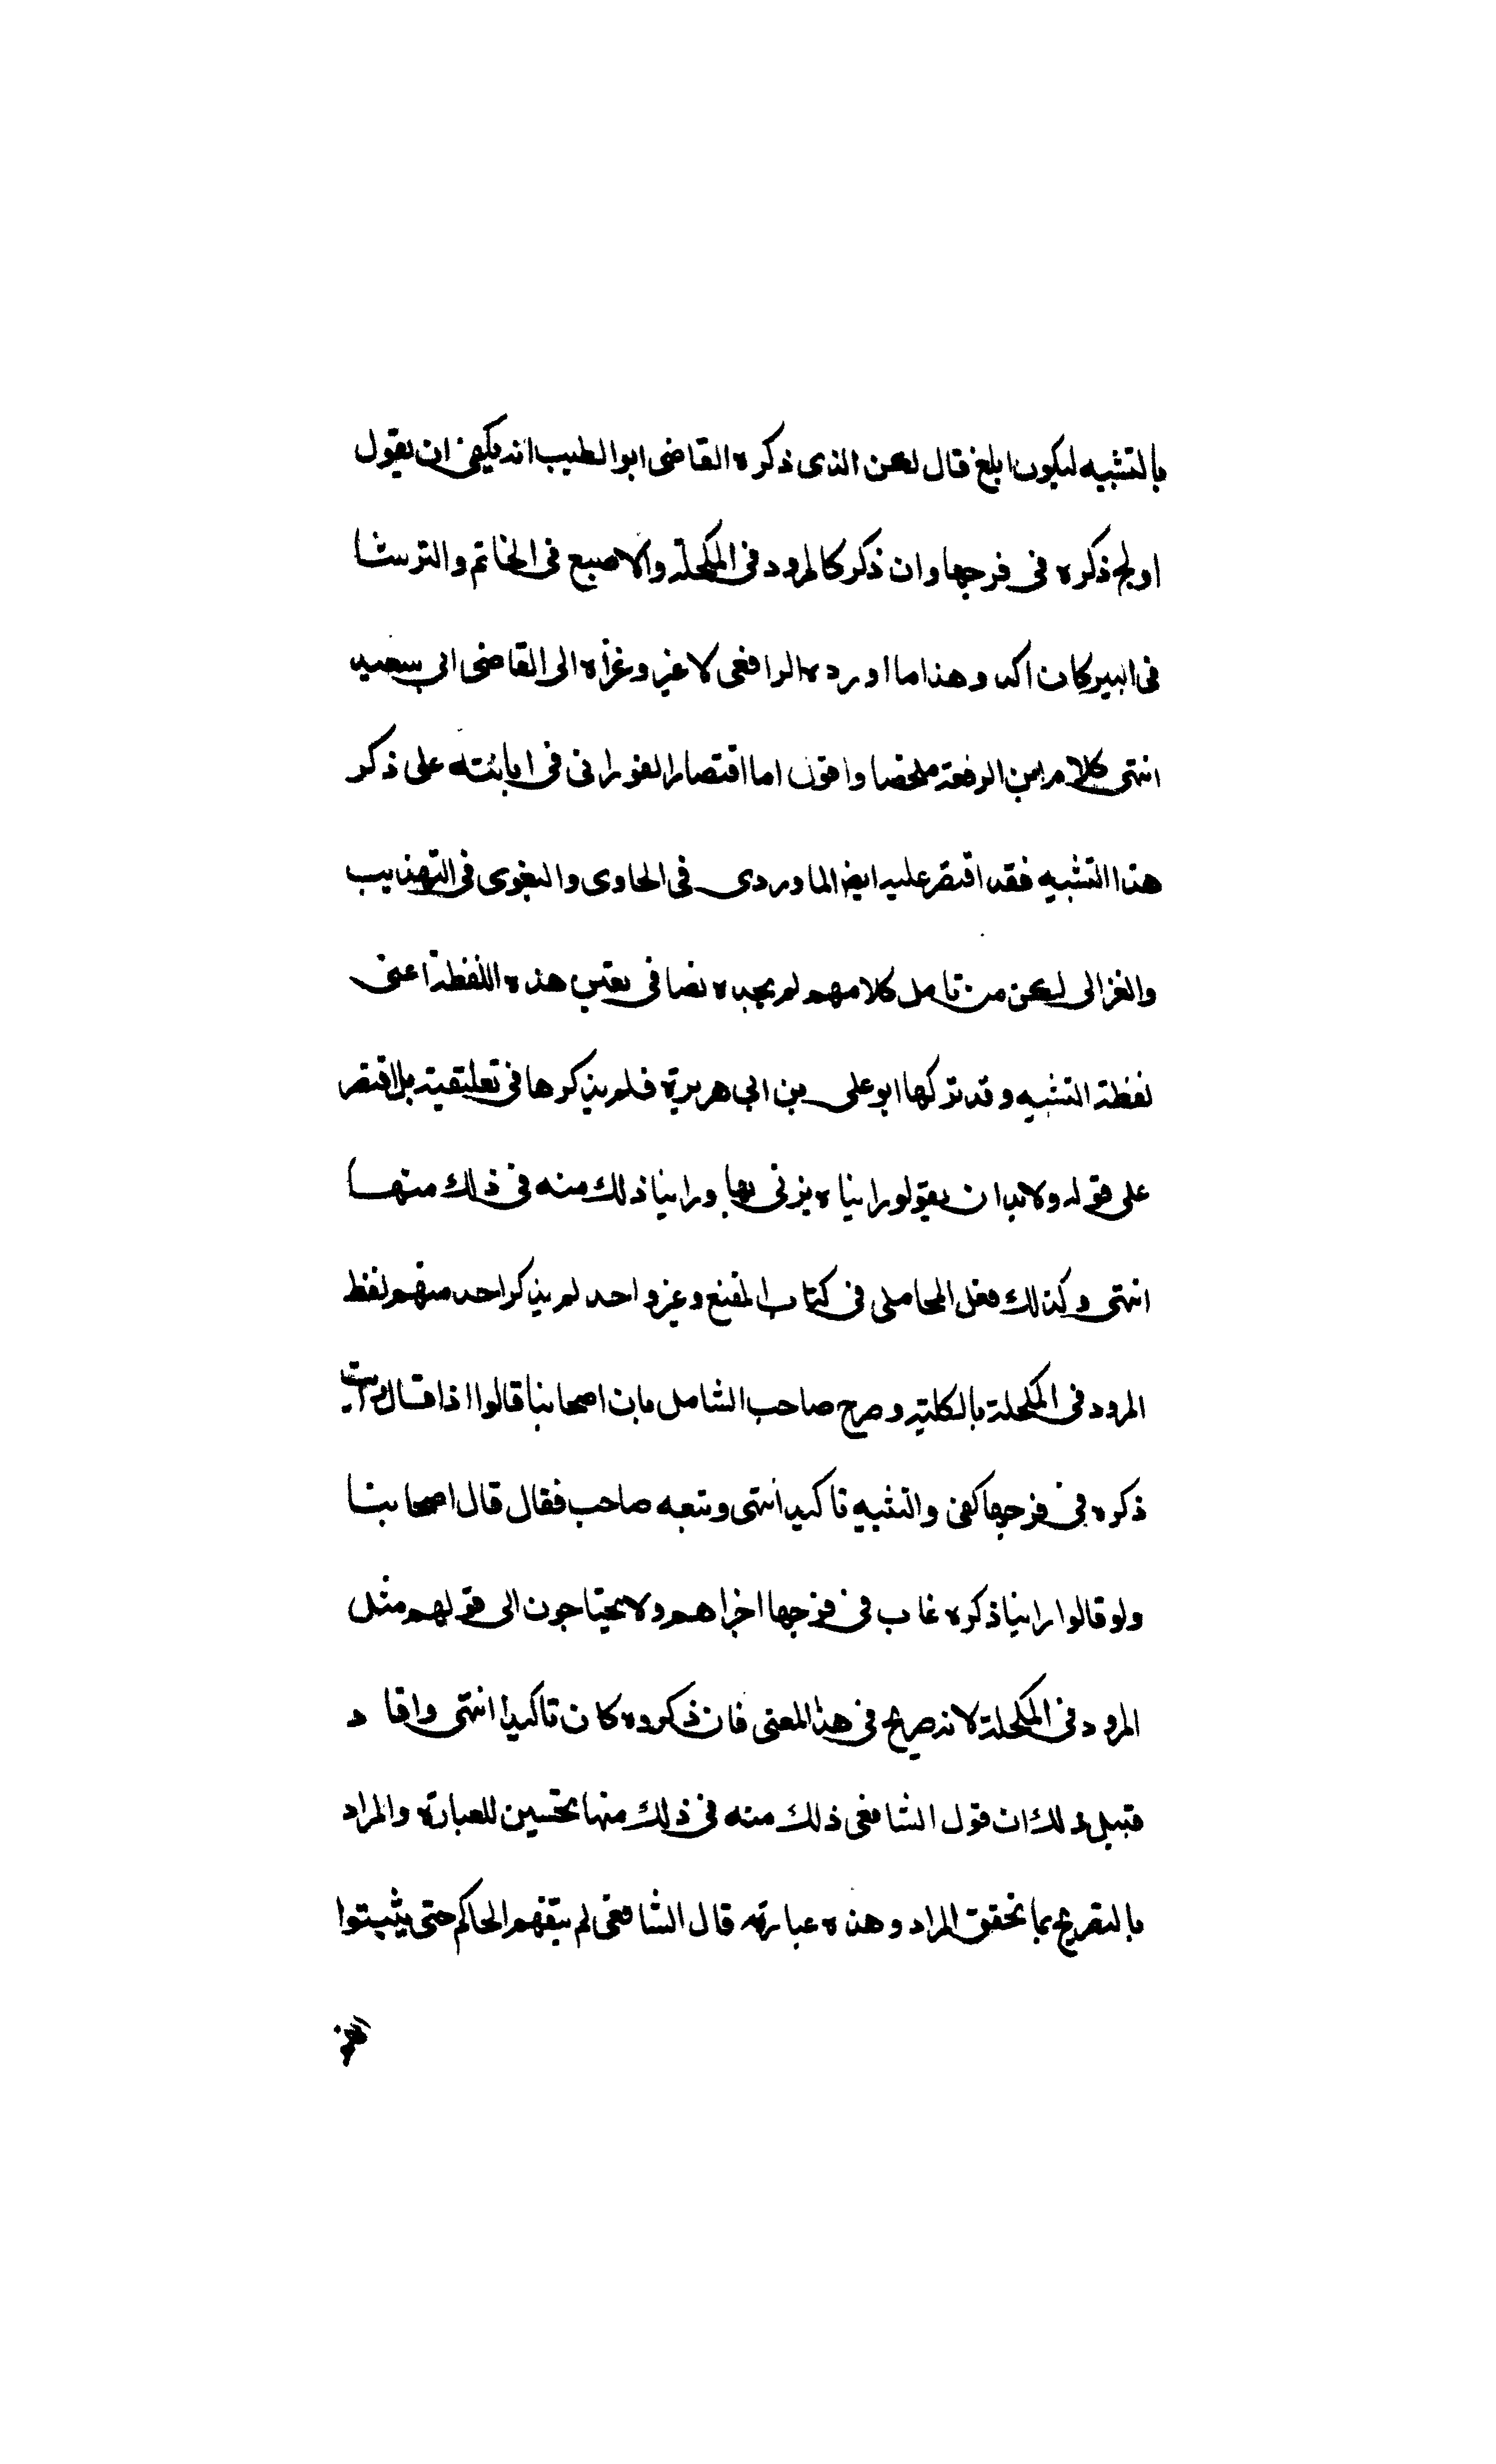 بالتشبيه ليكون ابلغ قال لكن الذى ذكره القاضى ابوالطيب انه يكفى ان يقول
اولج ذكره فى فرجها وان ذكر كالمرود فى المكحلة والاصبع فى الخاتم والترشا
فى البير كان اكد وهذا ما اورده الرافعى لا غير وعزاه الى القاضى ابى سعيد
انتهى كلام ابن الرفعة ملخصا واقول اما اقتصار الفورانى فى ابانته على ذكر
هذا التشبيه فقد اقتصر عليه ايضا الماوردى فى الحاوى والبغوى فى التهذيب
والغزالى لكن من تامل كلامهم لم يجده نصا فى تعين هذه اللفظة اعنى
لفظة التشبيه وقد تركها ابو على بن ابى هريرة فلم يذكرها فى تعليقيته بل اقتصر
على قوله ولابد ان يقولو راينياه يزنى بها وراينا ذلك منه فى ذلك منها
انتهى وكذلك فعل المحاملى فى كتاب المقنع وغيرو احد لم يذكر احد منهم لفظ
المرود فى المكحلة بالكلية وصرح صاحب الشامل بان اصحابنا قالوا اذا قال رايت
ذكره فى فرجها كفى والتشبيه تاكيد انتهى وتبعه صاحب فقال قال اصحابنا
ولو قالوا راينا ذكره غاب فى فرجها اجزاهم ولا يحتاجون الى قولهم مثل
المرود فى المكحلة لانه صريح فى هذا المعنى فان ذكروه كان تاكيدا انتهى وافا د
قبيل ذلك ان قول الشافعى ذلك منه فى ذلك منها تحسين للعبارة والمراد
بالتصريح بما تحقق المراد وهذه عبارته قال الشافعى لم يتفهم الحاكم حتى يثبتوا